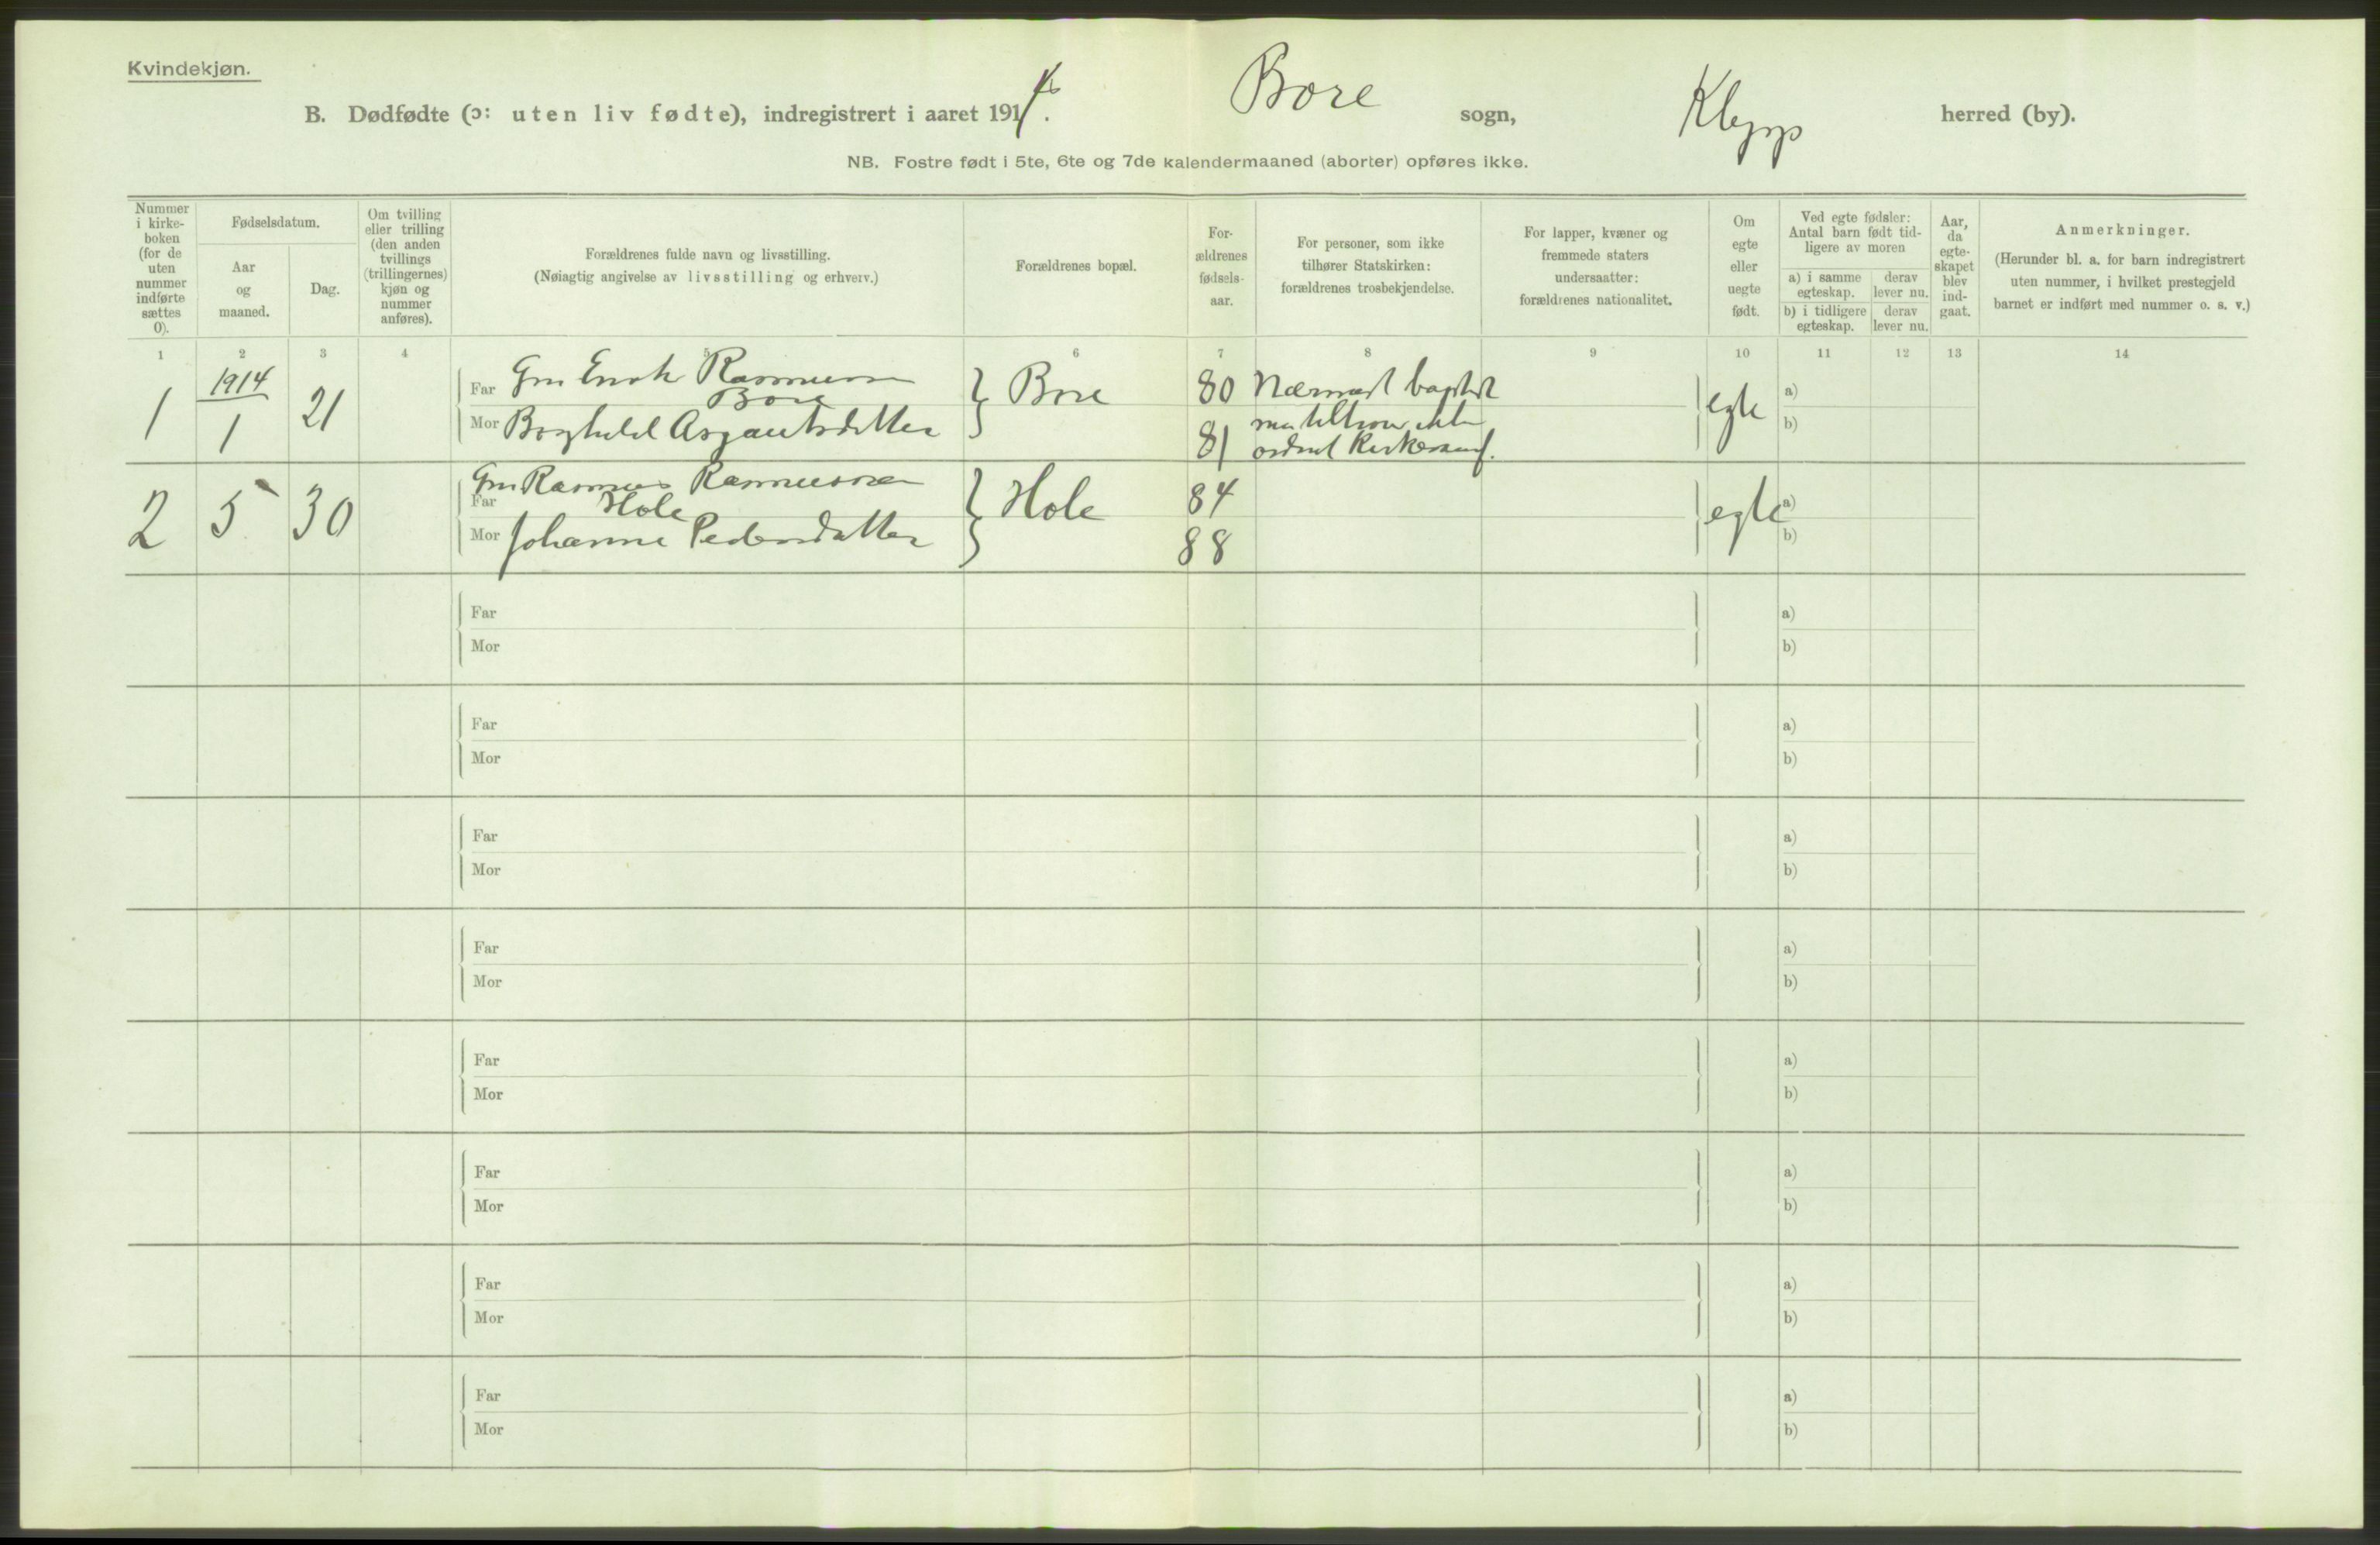 Kvindekjøn.
B. Dødfødte (ɔ: uten liv fødte), indregistrert i aaret 1914. Bore sogn, Klepp herred (by).
NB. Fostre født i 5te, 6te og 7de kalendermaaned (aborter) opføres ikke.
Nummer
i kirke-
boken
(for de
uten
nummer
indførte
sættes
0).
Fødselsdatum.
Aar
og
maaned.
Dag.
Om tvilling
eller trilling
(den anden
tvillings
(trillingernes)
kjøn og
nummer
anføres).
Forældrenes fulde navn og livsstilling.
(Nøiagtig angivelse av livsstilling og erhverv.)
Forældrenes bopæl.
For-
ældrenes
fødsels-
aar.
For personer, som ikke
tilhører Statskirken:
forældrenes trosbekjendelse.
For lapper, kvæner og
fremmede staters
undersaatter:
forældrenes nationalitet.
Om
egte
eller
uegte
født.
Ved egte fødsler:
Antal barn født tid-
ligere av moren
a) i samme
egteskap.
derav
lever nu.
b) i tidligere
egteskap.
derav
lever nu.
Aar,
da
egte-
skapet
blev
ind-
gaat.
Anmerkninger.
(Herunder bl. a. for barn indregistrert
uten nummer, i hvilket prestegjeld
barnet er indført med nummer o. s. v.)
1 2 3 4 5 6 7 8 9 10 11 12 13 14
1 1914 1 21
Far Gm Enok Rasmussen
Bore
Mor Borghild Asgautsdatter
Bore
80
81
Nærmest baptist
ordnet Kirkesamf.
egte
a)
b)
2 5 30
Far Gm Rasmus Rasmussen
Hole
Mor Johanne Pedersdatter
Hole
84
88
egte
a)
b)
Far a)
Mor b)
Far a)
Mor b)
Far a)
Mor b)
Far a)
Mor b)
Far a)
Mor b)
Far a)
Mor b)
Far a)
Mor b)
Far a)
Mor b)